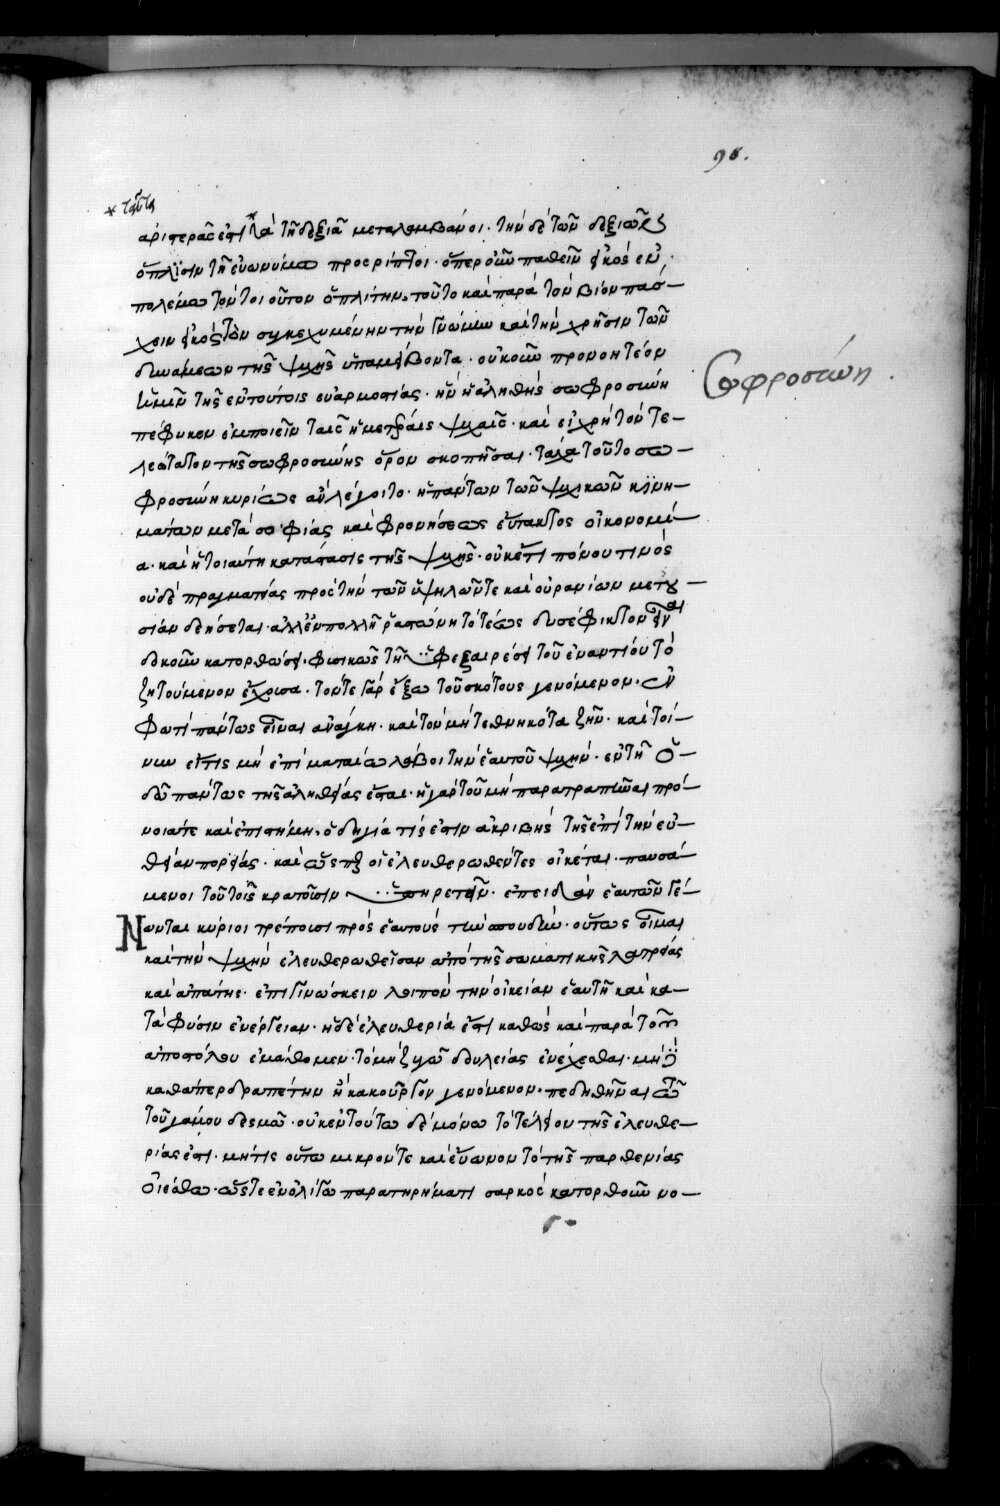 98.
* ταῦτα
ἀριστερᾶς ἐστὶ * τῇ δεξιᾷ μεταλαμβάνοι· τὴν δὲ τῶν δεξιῶν
ὅπλισιν τῇ εὐωνύμω προσρίπτοι· ὅπερ οὖν παθεῖν εἰκὸς ἐν
πολέμω τὸν τοιοῦτον ὁπλίτην, τοῦτο καὶ παρὰ τὸν βίον πάσ-
χειν εἰκὸς τὸν συγκεχυμένην τὴν γνώμην καὶ τὴν χρῆσιν τῶν
δυνάμεων τῆς ψυχῆς ὑπαμείβοντα· οὐκοῦν προνοητέον
ὑμῖν τῆς ἐν τούτοις εὐαρμοστίας· ἣν ἡ ἀληθὴς σωφροσύνη
πέφυκεν ἐμποιεῖν ταῖς ἡμετέραις ψυχαῖς· καὶ εἰ χρὴ τὸν τε-
λεώτατον τῆς σωφροσύνης ὅρον σκοπῆσαι· τάχα τοῦτο σω-
φροσύνη κυρίως ἂν λέγοιτο· ἡ πάντων τῶν ψυχικῶν κινη-
μάτων μετὰ σοφίας καὶ φρονήσεως εὔτακτος οἰκονομί-
α· καὶ ἡ τοιαύτη κατάστασις τῆς ψυχῆς· οὐκέτι πόνου τινὸς
οὐδὲ πραγματείας πρὸς τὴν τῶν ὑψηλῶν τε καὶ οὐρανίων μετου-
σίαν δεήσεται· ἀλλ' ἐν πολλῇ ῥαστώνη τὸ τέως δυσέφικτον εἶναι
δοκοῦν κατορθώσει· φυσικῶς τῇ ὑφεξαιρέσει τοῦ ἐναντίου τὸ
ζητούμενον ἔχουσα· τόν τε γὰρ ἔξω τοῦ σκότους γενόμενον· ἐν
φωτὶ πάντως εἶναι ἀνάγκη· καὶ τὸν μὴ τεθνηκότα ζῆν· καὶ τοί-
νυν εἴ τις μὴ ἐπὶ ματαίω λάβοι τὴν ἑαυτοῦ ψυχήν· ἐν τῇ ὁ-
δῶ πάντως τῆς ἀληθείας ἔσται· ἡ γὰρ τοῦ μὴ παρατραπῆναι πρό-
νοιά τε καὶ ἐπιστήμη· ὁδηγία τίς ἐστιν ἀκριβὴς τῆς ἐπὶ τὴν εὐ-
θεῖαν πορείας· καὶ ὥσπερ οἱ ἐλευθερωθέντες οἰκέται· παυσά-
μενοι τοῦ τοῖς κρατοῦσιν ὑπηρετεῖν· ἐπειδὰν ἑαυτῶν γέ-
Νωνται κύριοι τρέπουσι πρὸς ἑαυτοὺς τὴν σπουδήν· οὕτως οἶμαι
καὶ τὴν ψυχὴν ἐλευθερωθεῖσαν ἀπὸ τῆς σωματικῆς λατρείας
καὶ ἀπάτης· ἐπιγινώσκειν λοιπὸν τὴν οἰκείαν ἑαυτῇ καὶ κα-
τὰ φύσιν ἐνέργειαν· ἡ δὲ ἐλευθερία ἐστὶ καθὼς καὶ παρὰ τοῦ
ἀποστόλου ἐμάθομεν· τὸ μὴ ζυγῶ δουλείας ἐνέχεσθαι· μηδὲ
καθάπερ δραπέτην ἢ κακοῦργον γενόμενον· πεδηθῆναι τῶ
τοῦ γάμου δεσμῶ· οὐκ ἐν τούτω δὲ μόνω τὸ τέλειον τῆς ἐλευθε-
ρίας ἐστί· μή τις οὕτω μικρόν τε καὶ εὔωνον τὸ τῆς παρθενίας
οἰέσθω· ὥστε ἐν ὀλίγω παρατηρήματι σαρκὸς κατορθοῦν νο-
Σωφροσύνη.